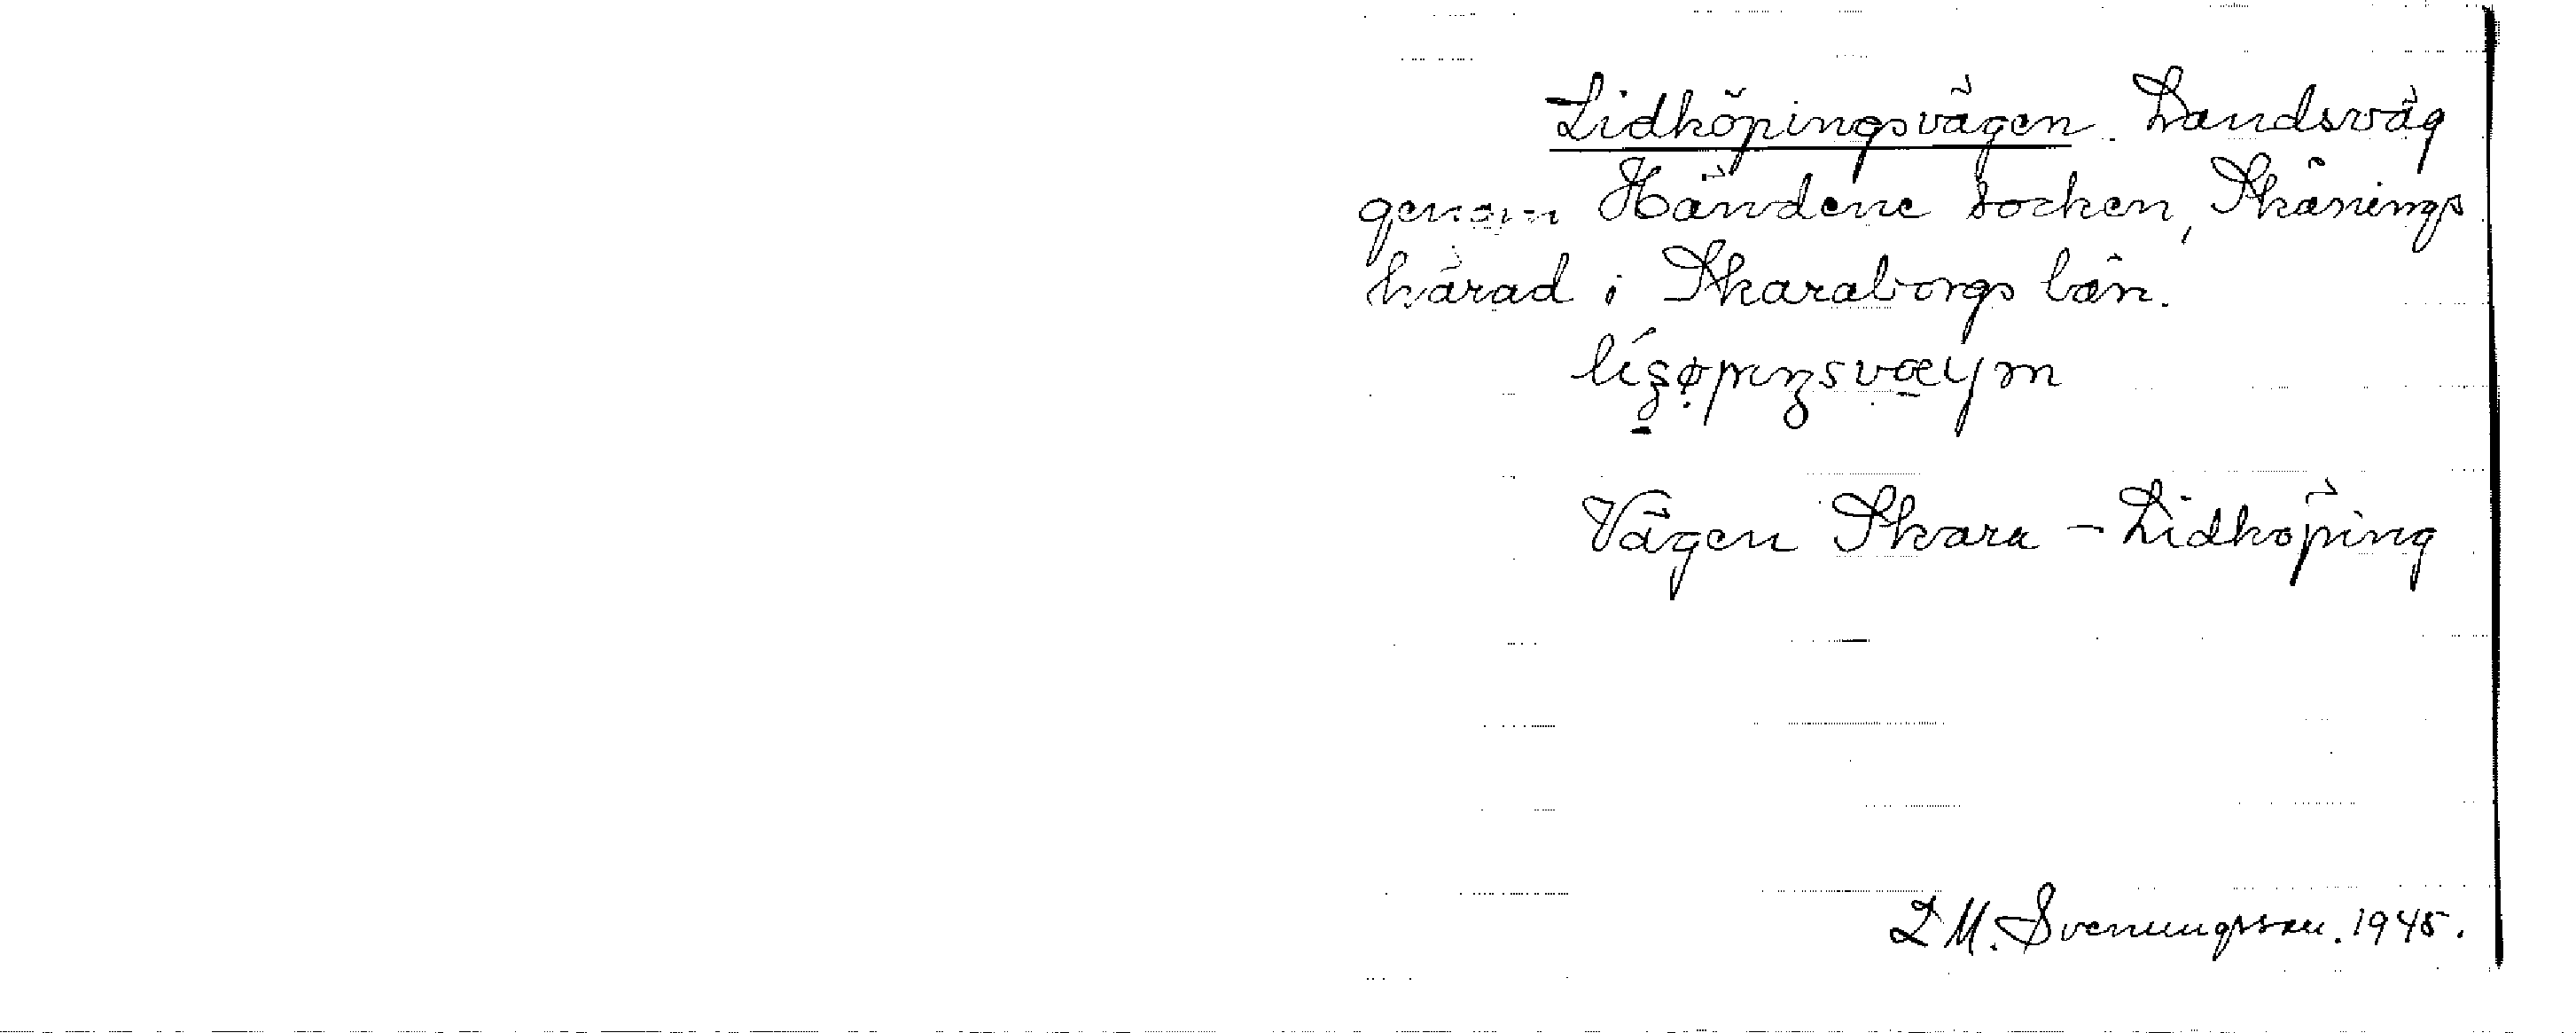 Lidköpingsvägen. Landsväg
genom Händene socken, Skånings
härad i Skaraborgs län.
Vägen Skara - Lidköping
L M. Svenungsson. 1945.